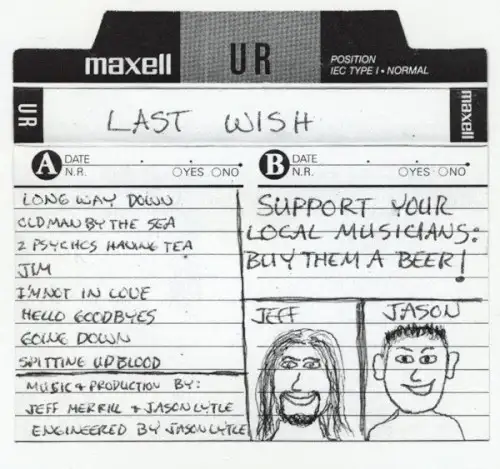 maxell UR POSITION
IEC TYPE I • NORMAL
UR LAST WISH maxell
A DATE
N.R. YES NO
LONG WAY DOWN
OLD MAN BY THE SEA
2 PSYCHOS HAVING TEA
JIM
I'M NOT IN LOVE
HELLO GOODBYES
GOING DOWN
SPITTING UP BLOOD
MUSIC & PRODUCTION BY:
JEFF MERRILL & JASON LYTLE
ENGINEERED BY JASON LYTLE
B DATE
N.R. YES NO
SUPPORT YOUR
LOCAL MUSICIANS:
BUY THEM A BEER!
JEFF
JASON